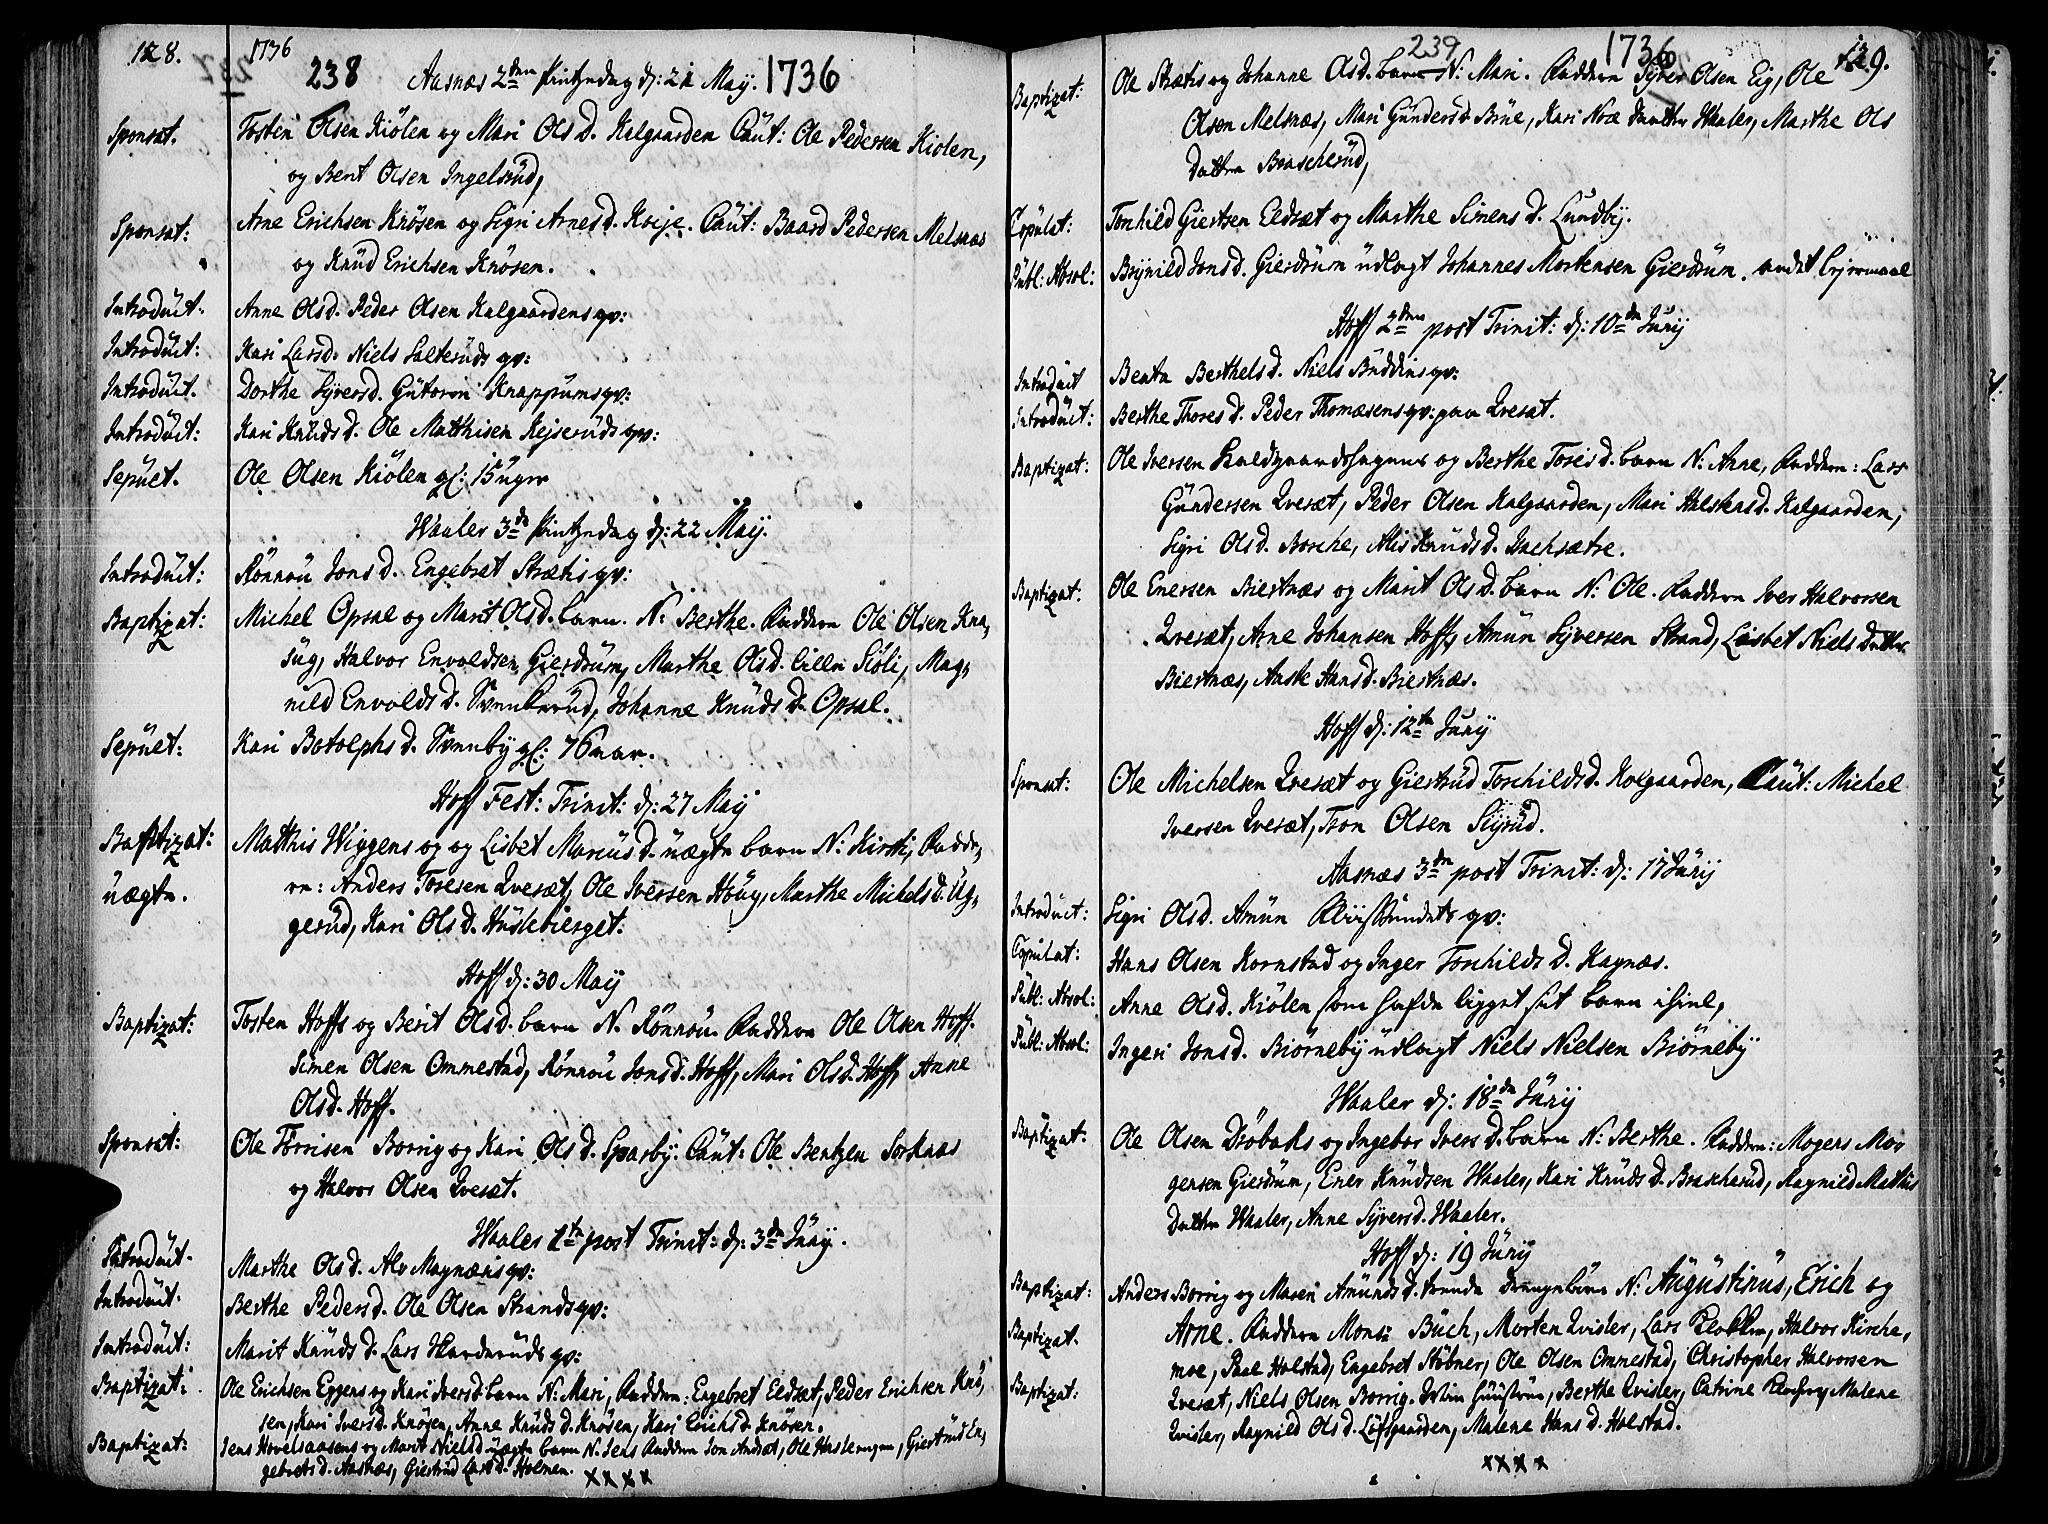 128.
1736
238
Aasnæs 2den Pintzedag d: 21 May. 1736
Sponsat. Tosten Olsen Kiölen og Mari Ols D. Kalgaarden Caut: Ole Pedersen Kiolen,
og Bent Olsen Ingelsrüd,
Sponsat: Arne Erichsen Knösen og Sigri Arnes d. Kveje. Caüt: Baard Pedersen Melsnæs
og Knüd Erichsen Knösen.
Introdüit: Anne Olsd. Peder Olsen Kalgaardens qv:
Introdüit: Kari Larsd. Niels Salterüds qv:
Introdüit. Dorthe Syversd. Gütorm Knappüms qv:
Introdüit: Kari Knüds d. Ole Matthisen Kejserüds qv:
Sepült. Ole Olsen Kiölen gl: 15 üger
Waaler 3de Pintzedag d: 22 Maij.
Introdüit: Rönnoü Jons d. Engebret Stræts qv:
Baptizat: Michel Opsal og Marit Olsd. barn. N: Berthe. Faddere Ole Olsen Kna,
süg, Halvor Envoldsen Gierdrüm, Marthe Olsd. lille Siöli, Mag,
nild Envolds d. Svenkerüd, Johanne Knüds d. Opsal.
Sepült: Kari Botolphs d. Svenby gl: 76 aar.
Hoff Fest: Trinit: d: 27 Maij
Baptizat: Matthis Wiggens og og Lisbet Mariüs d. üægte barn N: Kirsti, Fadde,
üægte. re: Anders Toresen Qvesæt, Ole Iversen Höüg, Marthe Michels d. Üg,
gerüd, Kari Ols d. Hüslebierget.
Hoff d: 30 Maij
Baptizat: Tosten Hoffs og Berit Olsd. barn N. Rönnoü. Faddere Ole Olsen Hoff.
Simen Olsen Ommestad, Rönnoü Jonsd. Hoff, Mari Olsd. Hoff, Anne
Olsd. Hoff.
Sponsat: Ole Torrisen Borrig og Kari Ols d. Sparby. Caüt: Ole Bentzen Sorknæs
og Halvor Olsen Qvesæt.
Waaler 1te post Trinit: d: 3de Jünij.
Introdüit. Marthe Olsd. Alv Magnæs qv:
Introdüit: Berthe Pedersd. Ole Olsen Strands qv:
Introdüit: Marit Knüds d. Lars Harderüds qv:
Baptizat: Ole Erichsen Eggens og Kari Iversd. barn N: Mari, Faddere: Engebret Eidsæt, Peder Erichsen Knö,
sen, Kari Iversd. Knösen, Anne Knüds d. Knösen, Kari Erichsd. Knösen.
Baptizat: Jens Hovelsaasens og Marit Nielsd. üægte barn N. Jens Faddere Jon Andset, Ole Haslerügen, Giertrüd En,
gebrets d. Aasnæs, Giertrüd Lars d. Holmen.
xxxx
239
1736
129.
Baptizat: Ole Stræts og Johanne Olsd. barn N: Mari. Faddere Syver Olsen Eig, Ole
Olsen Melsnæs, Mari Günders d. Brüe, Kari Næ Datter Waaler, Marthe Ols
Datter Brascherüd,
Copülat: Torchild Giertsen Eidsæt og Marthe Simens d. Lundbÿ.
Pübl: Absol: Brijnild Jons d. Gierdrüm üdlagt Johannes Mortensen Gierdrüm. andet lejermaal
Hoff 2den post Trinit: d: 10de Jünij
Introdüit Beate Berthels d. Niels Büddings qv:
Introdüit: Berthe Thores d. Peder Thomæsens qv: paa Qvesæt.
Baptizat: Ole Iversen og Berthe Tores d. barn N: Anne, Faddere: Lars
Gündersen Qvesæt, Peder Olsen Kalgaarden, Mari Halstens d. Kalgaarden,
Sigri Ols d. Borche, Alis Knüds d. Dachsætre.
Baptizat: Ole Enersen Biertnæs og Marit Ols d. barn N: Ole. Faddere Iver Halvorsen
Qvesæt, Arne Johansen Hoff, Amün Syversen Strand, Lisbet Niels Datter
Biertnæs, Aaste Hansd. Biertnæs.
Hoff d: 12te Jünij
Sponsat: Ole Michelsen Qvesæt og Giertrüd Torchilds d. Kolgaarden, Caüt: Michel
Iversen Qvesæt, Tron Olsen Sigrüd.
Aasnæs 3de post Trinit: d: 17 Jünij
Introdüct: Sigri Olsd. Amün qv:
Copülat: Hans Olsen Kornstad og Inger Torchilds d. Hagnæs.
Pübl: Absol: Anne Olsd. Kiölen som hafde ligget sit barn ihiel,
Pübl: Absol: Ingeri Jonsd. Biörnebÿ üdlagt Niels Nielsen Biörnebÿ
Waaler d: 18de Jünij
Baptizat: Ole Olsen Dröbachs og Ingebor Ivers d. barn N: Berthe. Faddere: Mogens Mo
gensen Gierdrüm, Ener Knüdsen Waaler, Kari Knüds d. Braskerüd, Ragnild Mathis
Datter Waaler, Anne Syversd. Waaler.
Hoff d: 19 Jünij
Baptizat: Anders Borrig og Maren Amünds d. trende drengebörn N: Augüstinüs, Erich og
Baptizat. Arne. Faddere Mons: Büch, Morten Qvisler, Lars Klokker, Halvor Kirche,
moe, Paal Holstad, Engebret Stübner, Ole Olsen Ommestad, Christopher Halvorsen
Baptizat: Qvesæt, Niels Olsen Borrig. Berthe Qvisler, Catrine Malene
Qvisler, Ragnild Ols d. Löfsgaarden, Malene Hans d. Holstad.
xxxx